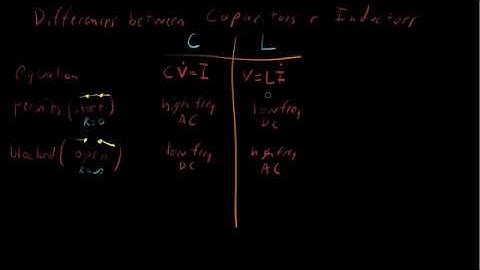 Differences between Capacitors & Inductors
C L
equation CV̇=I V=Lİ
permits (short) R=0 high freq AC low freq DC
blocked (open) R=∞ low freq DC high freq AC